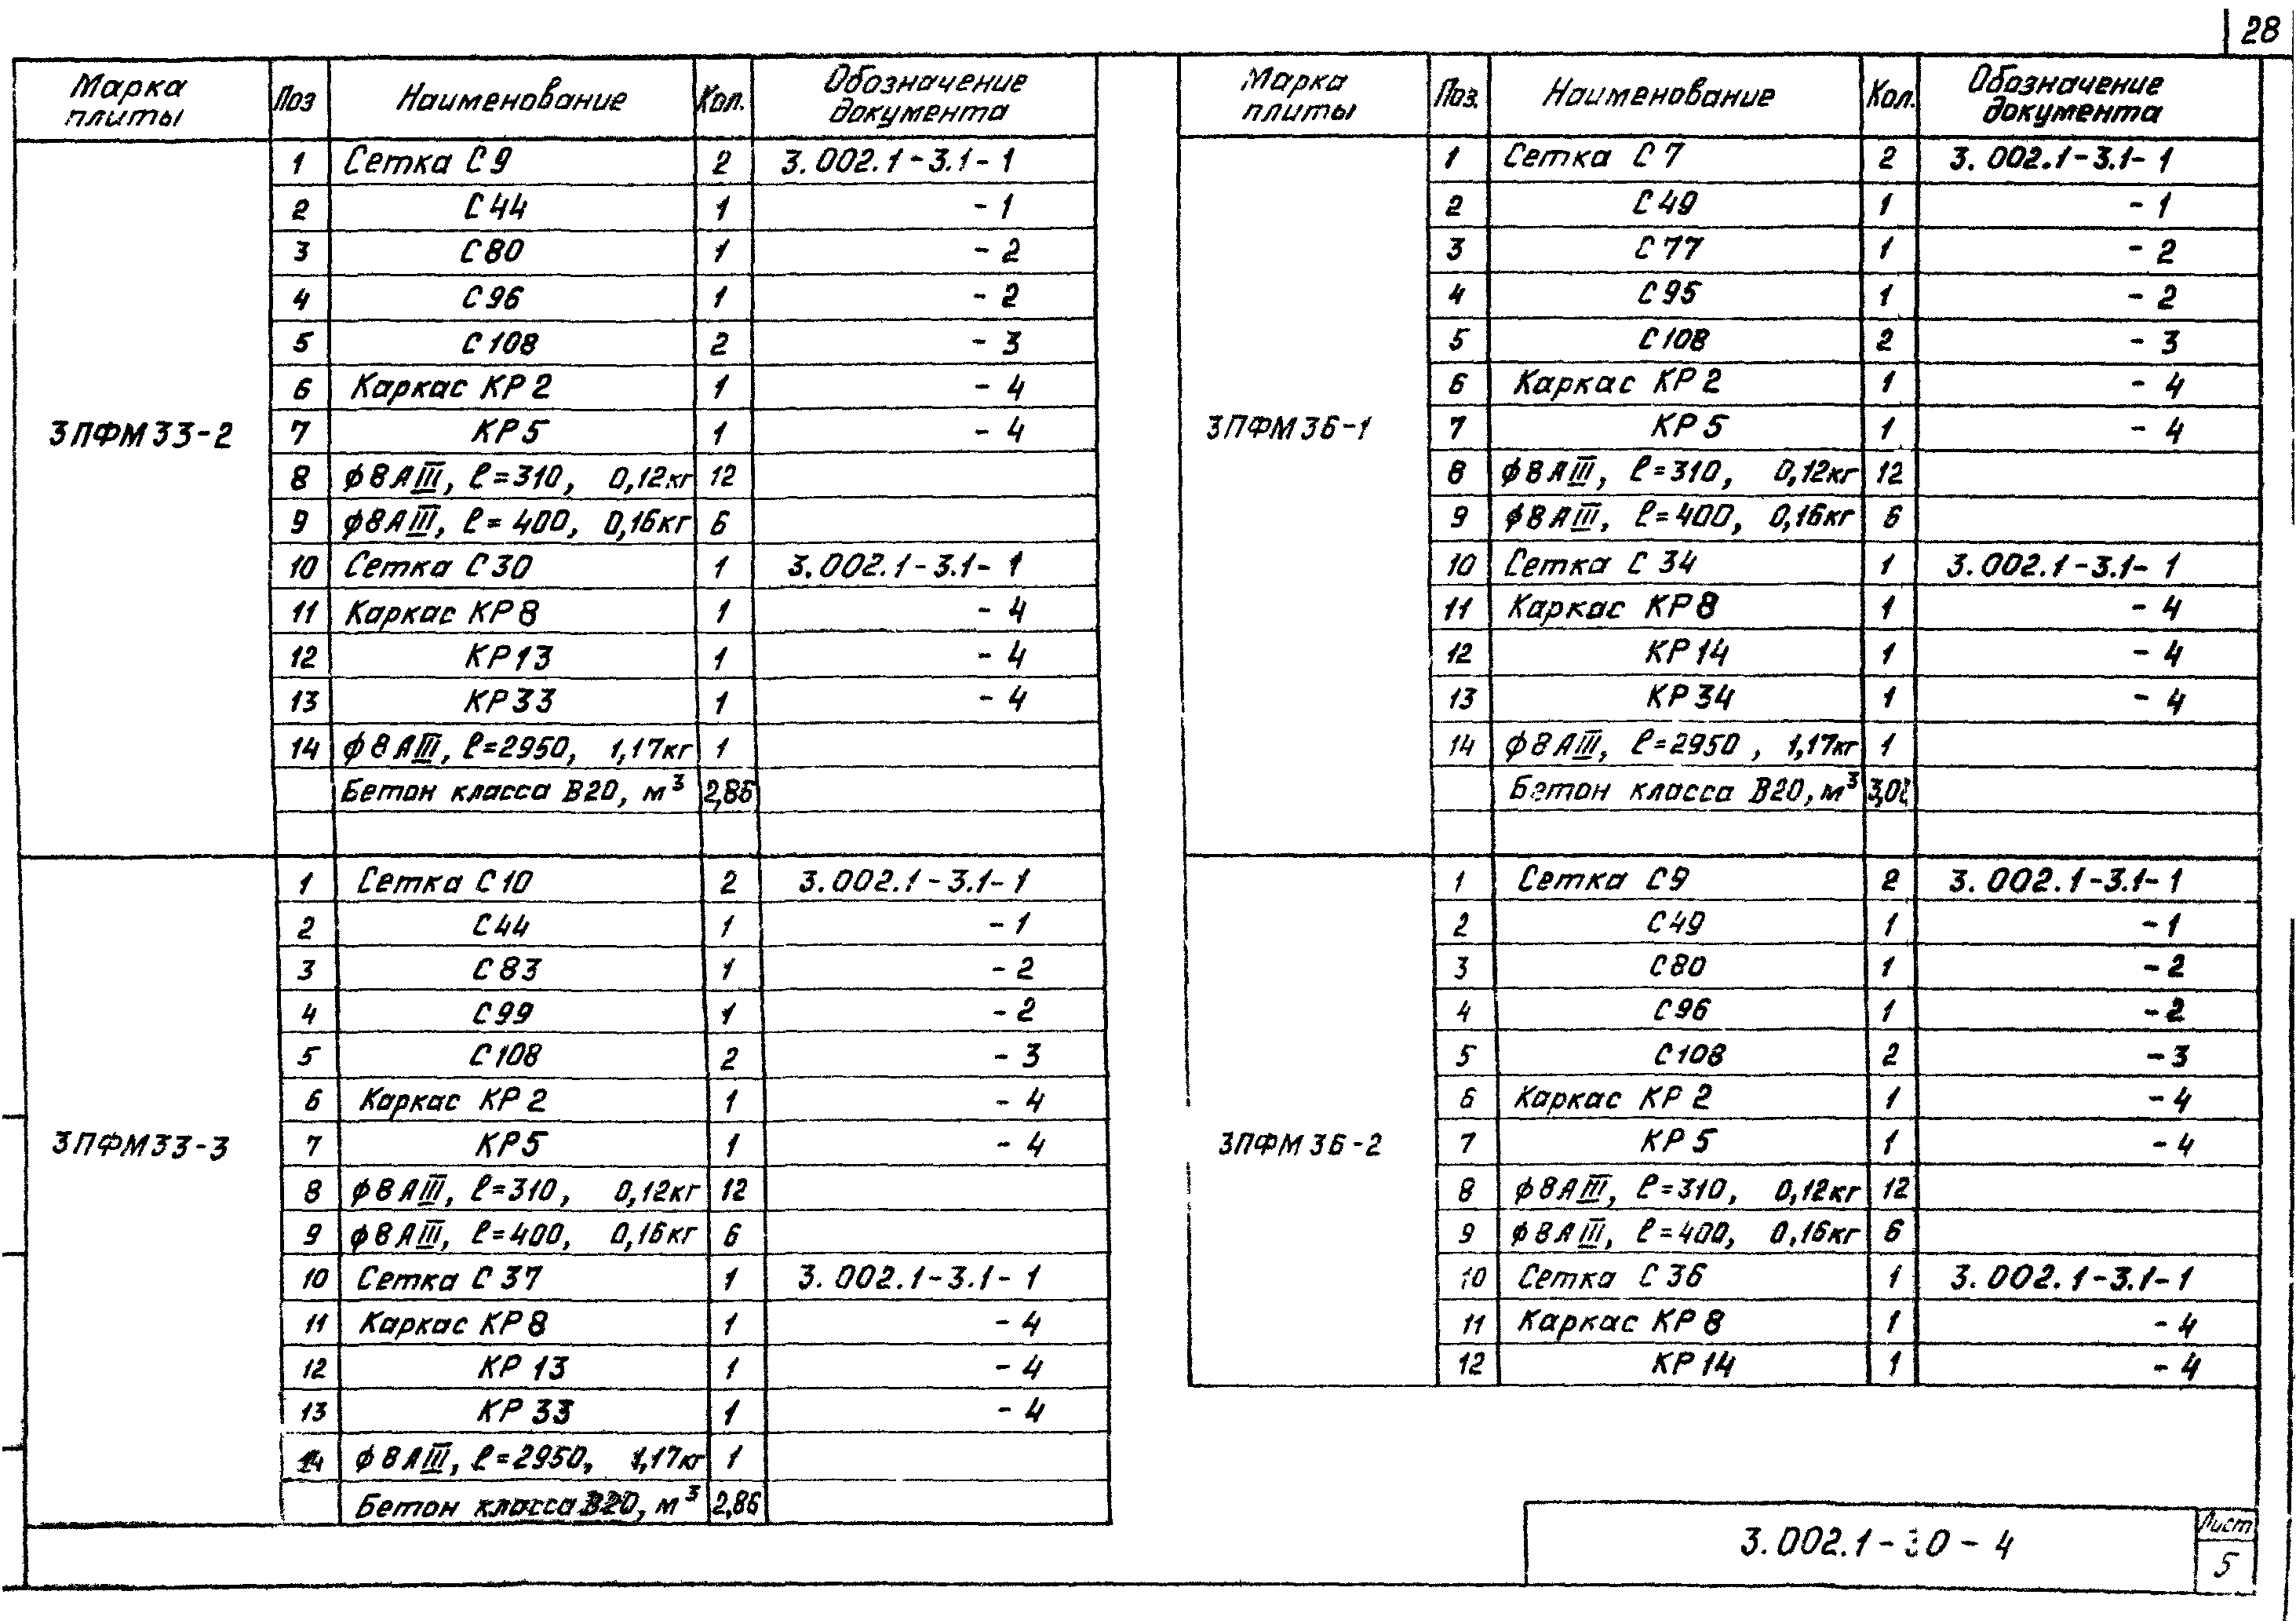 28
Марка плиты Поз Наименование Кол. Обозначение документа
3ПФМ33-2
1 Сетка С9 2 3.002.1-3.1-1
2 С44 1 -1
3 С80 1 -2
4 С96 1 -2
5 С108 2 -3
6 Каркас КР2 1 -4
7 КР5 1 -4
8 ф8АIII, ℓ=310, 0,12кг 12
9 ф8АIII, ℓ=400, 0,16кг 6
10 Сетка С30 1 3.002.1-3.1-1
11 Каркас КР8 1 -4
12 КР13 1 -4
13 КР33 1 -4
14 ф8АIII, ℓ=2950, 1,17кг 1
Бетон класса В20, м³ 2,86
3ПФМ33-3
1 Сетка С10 2 3.002.1-3.1-1
2 С44 1 -1
3 С83 1 -2
4 С99 1 -2
5 С108 2 -3
6 Каркас КР2 1 -4
7 КР5 1 -4
8 ф8АIII, ℓ=310, 0,12кг 12
9 ф8АIII, ℓ=400, 0,16кг 6
10 Сетка С37 1 3.002.1-3.1-1
11 Каркас КР8 1 -4
12 КР13 1 -4
13 КР33 1 -4
14 ф8АIII, ℓ=2950, 1,17кг 1
Бетон класса В20, м³ 2,86
Марка плиты Поз. Наименование Кол. Обозначение документа
3ПФМ36-1
1 Сетка С7 2 3.002.1-3.1-1
2 С49 1 -1
3 С77 1 -2
4 С95 1 -2
5 С108 2 -3
6 Каркас КР2 1 -4
7 КР5 1 -4
8 ф8АIII, ℓ=310, 0,12кг 12
9 ф8АIII, ℓ=400, 0,16кг 6
10 Сетка С34 1 3.002.1-3.1-1
11 Каркас КР8 1 -4
12 КР14 1 -4
13 КР34 1 -4
14 ф8АIII, ℓ=2950, 1,17кг 1
Бетон класса В20, м³
3ПФМ36-2
1 Сетка С9 2 3.002.1-3.1-1
2 С49 1 -1
3 С80 1 -2
4 С96 1 -2
5 С108 2 -3
6 Каркас КР2 1 -4
7 КР5 1 -4
8 ф8АIII, ℓ=310, 0,12кг 12
9 ф8АIII, ℓ=400, 0,16кг 6
10 Сетка С36 1 3.002.1-3.1-1
11 Каркас КР8 1 -4
12 КР14 1 -4
3.002.1-3.0-4
Лист
5